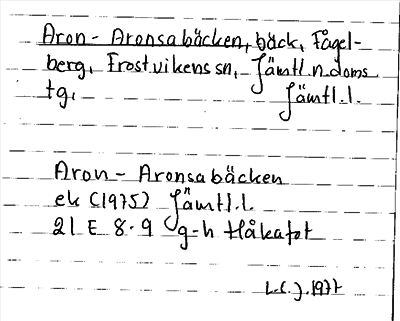 Aron - Aronsabäcken, bäck, Fågel-
berg, Frostvikens sn, Jämtl. n. doms
tg, Jämtl. l.
Aron - Aronsabäcken
ek (1975) Jämtl. l.
21 E 8-9 g-h Håkafot
L.C.J. 1977